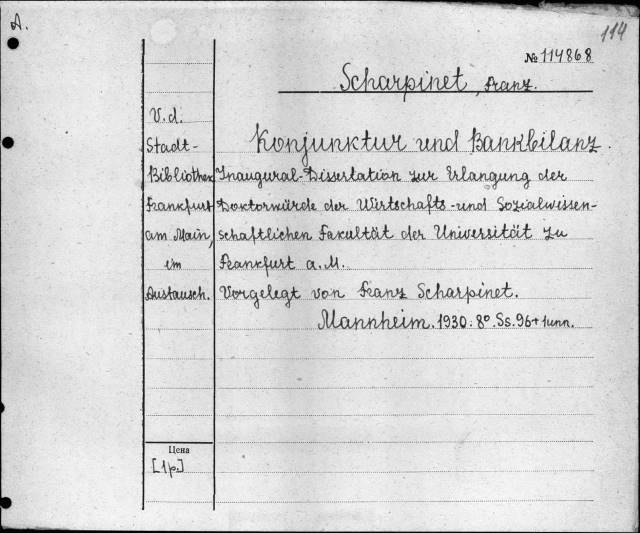 A.
114
№ 114868
Scharpinet, Franz.
V. d.
Stadt-
Bibliothek
Frankfurt
am Main,
im
Austausch.
Konjunktur und Bankbilanz.
Inaugural-Dissertation zur Erlangung der
Doktorwürde der Wirtschafts- und Sozialwissen-
schaftlichen Fakultät der Universität zu
Frankfurt a. M.
Vorgelegt von Franz Scharpinet.
Mannheim. 1930. 8º. Ss. 96 + 1 unn.
Цена
[1 р.]